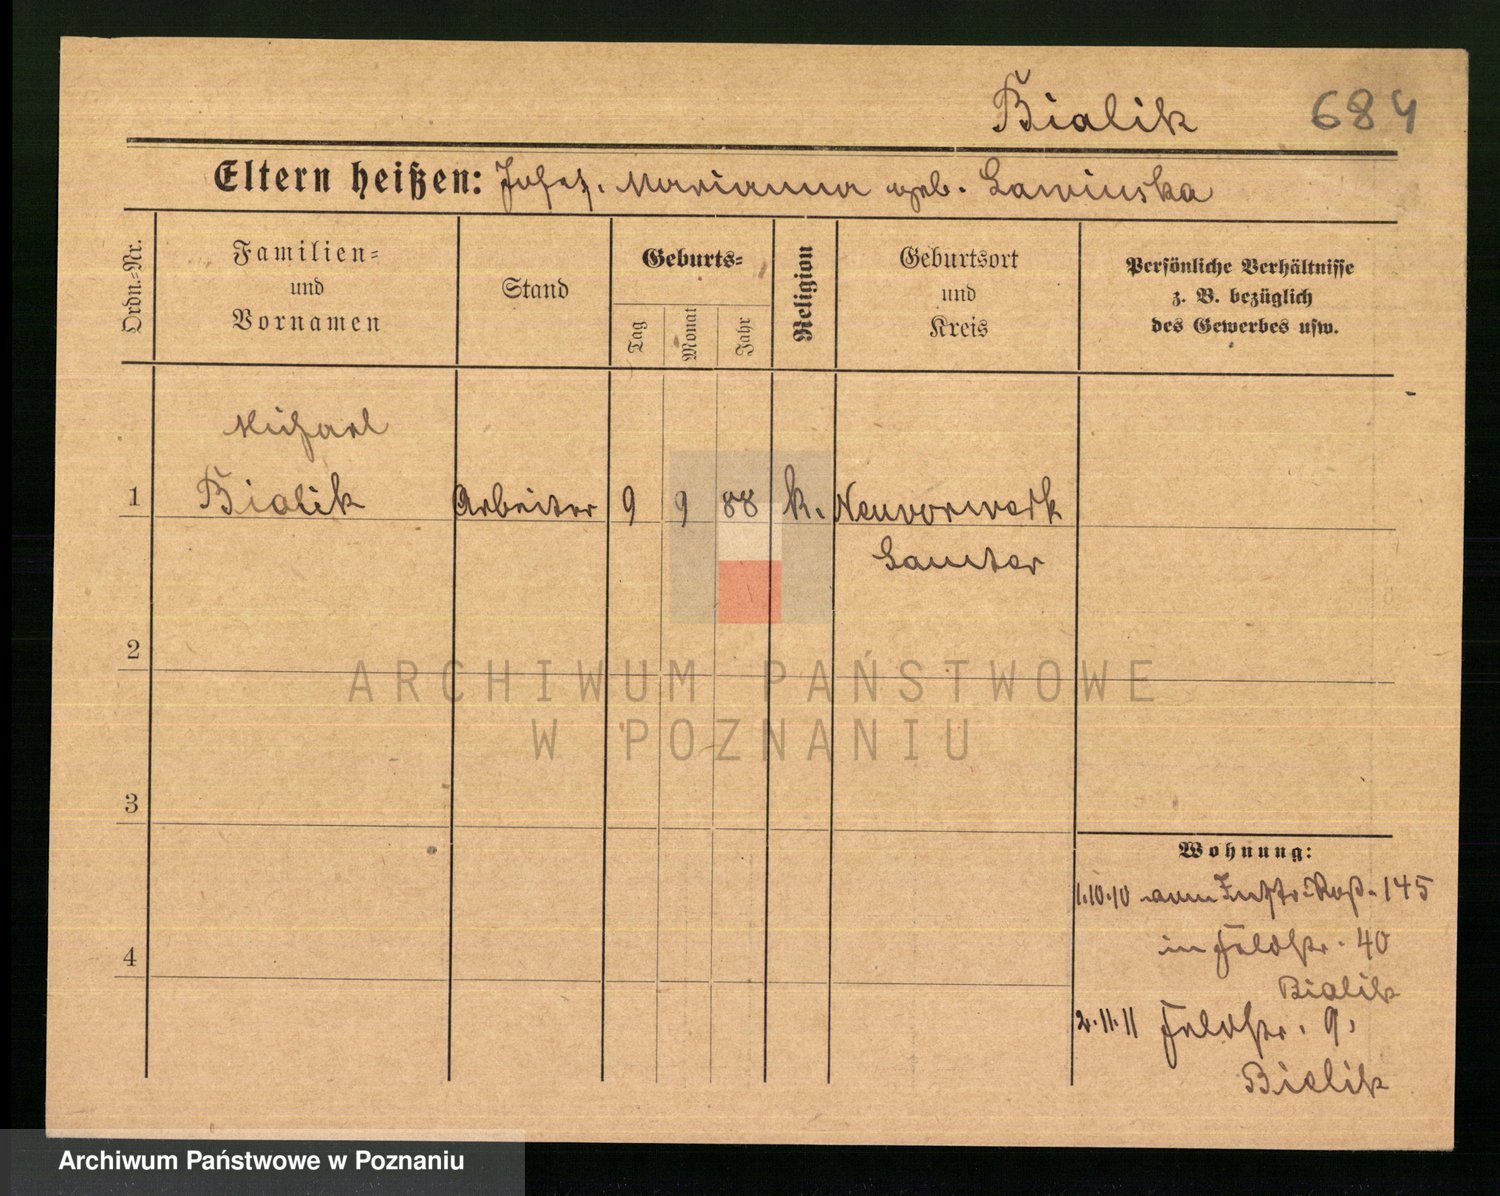 Bialik 684
Eltern heißen: Josef. Marianna geb. Lawinska
Ordn.-Nr.
Familien-
und
Vornamen
Stand
Geburts-
Tag
Monat
Jahr
Religion
Geburtsort
und
Kreis
Persönliche Verhältnisse
z. B. bezüglich
des Gewerbes usw.
Michael
1 Bialik Arbeiter 9 9 88 k. Neuvorwerk
Samter
2
3
4
Wohnung:
1.10.10 vom 145
in Feldstr. 40
Bialik
2.11.11 Feldstr. 9,
Bialik
ARCHIWUM PAŃSTWOWE
W POZNANIU
Archiwum Państwowe w Poznaniu